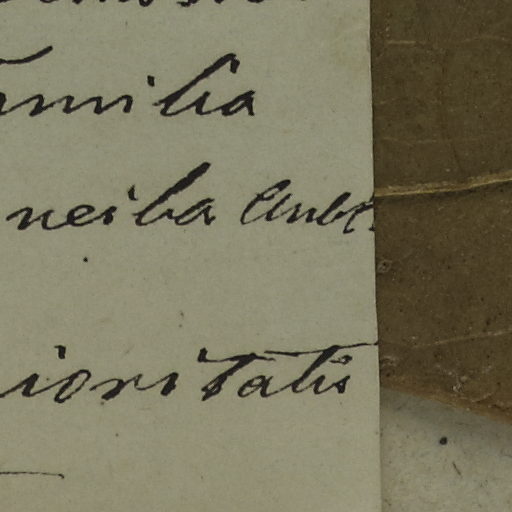 amilia
neiba Aubl.
ioritatis